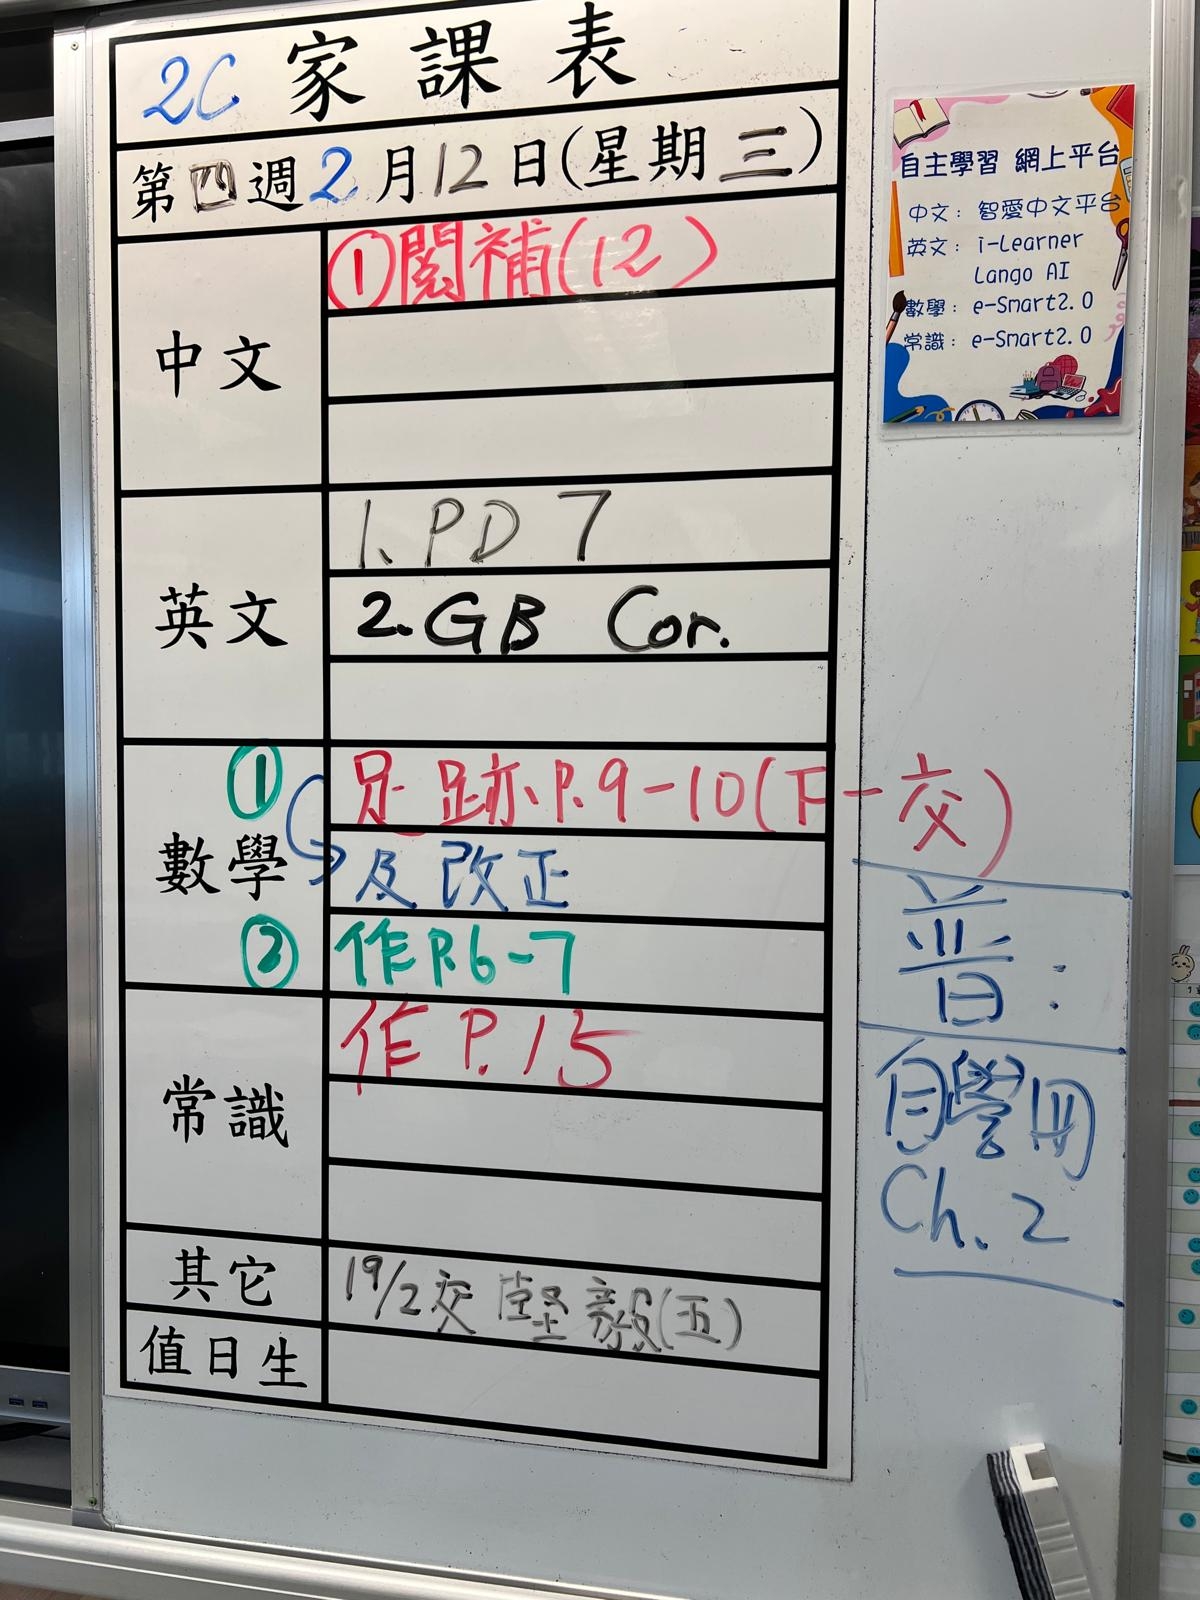 2C 家課表
第四週2月12日(星期三)
中文
①閱補(12)
英文
1. PD 7
2. GB Cor.
數學
① 足跡P.9-10(下一交)
及改正
② 作P.6-7
常識
作P.15
其它
19/2交 堅毅(五)
值日生
普:
自學冊
Ch. 2
自主學習 網上平台
中文: 智愛中文平台
英文: i-Learner
Lango AI
數學: e-Smart2.0
常識: e-Smart2.0